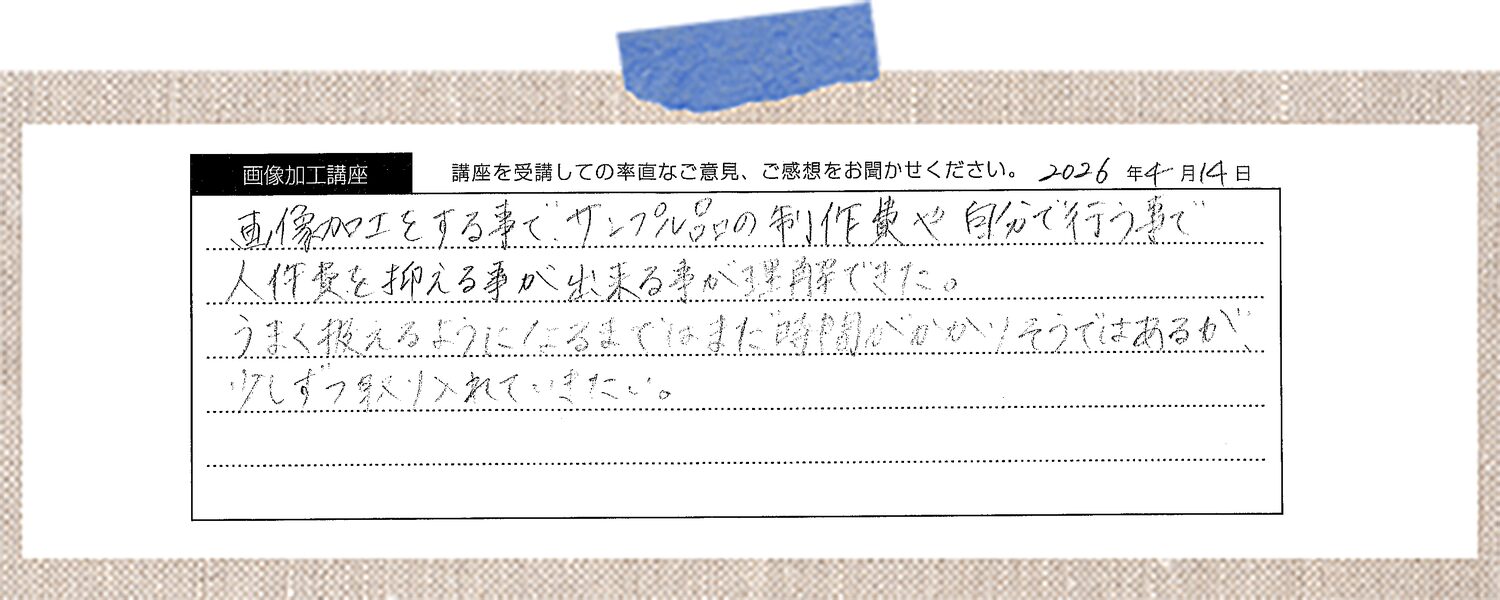 画像加工講座 講座を受講しての率直なご意見、ご感想をお聞かせください。 2026年4月14日
画像加工をする事で、サンプル品の制作費や自分で行う事で
人件費を抑える事が出来る事が理解できた。
うまく扱えるようになるまではまだ時間がかかりそうではあるが、
少しずつ取り入れていきたい。